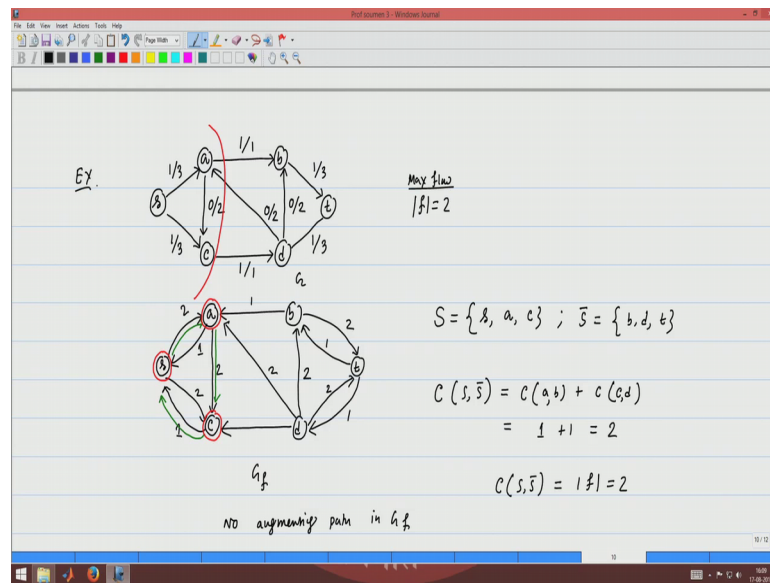 Prof soumen 3 - Windows Journal
File Edit View Insert Actions Tools Help
Page Width
B I
EX.
s
a
b
c
d
t
1/3
1/1
1/3
0/2
0/2
0/2
1/3
1/1
1/3
G
Max flow
|f| = 2
s
a
b
c
d
t
2
1
1
2
2
2
1
2
1
2
2
1
G_f
S = {s, a, c} ; S̄ = {b, d, t}
C(S, S̄) = C(a,b) + C(c,d)
= 1 + 1 = 2
C(S, S̄) = |f| = 2
No augmenting path in G_f
10 / 12
10
16:09